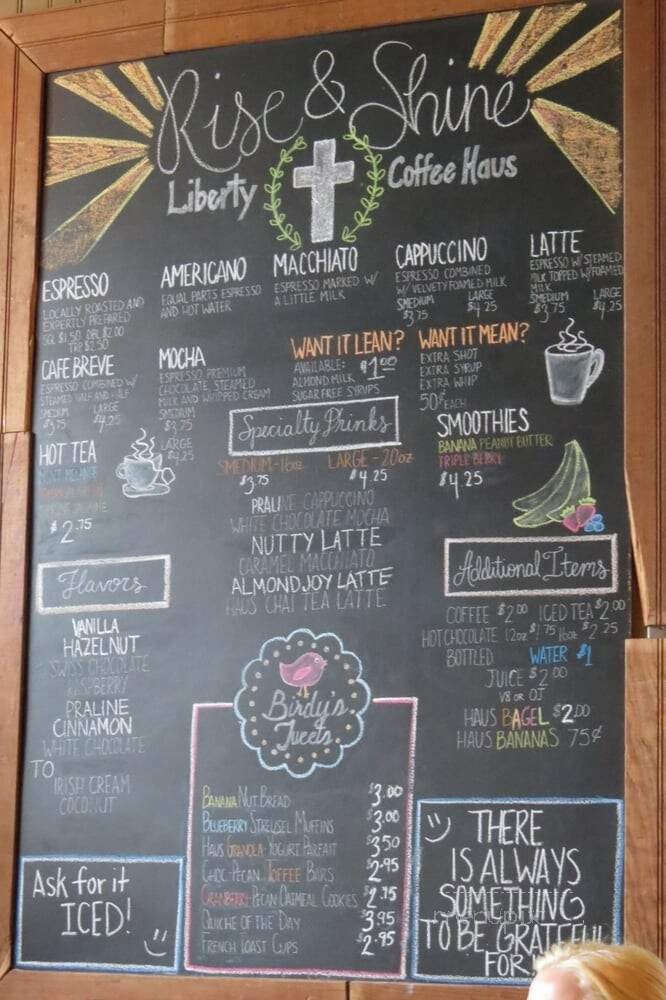 Rise & Shine
Liberty Coffee Haus
ESPRESSO
LOCALLY ROASTED AND
EXPERTLY PREPARED
SGL $1.50 DBL $2.00
TRP $2.50
AMERICANO
EQUAL PARTS ESPRESSO
AND HOT WATER
MACCHIATO
ESPRESSO MARKED W/
A LITTLE MILK
CAPPUCCINO
ESPRESSO COMBINED
W/ VELVETY FOAMED MILK
SMEDIUM LARGE
$3.75 $4.25
LATTE
ESPRESSO W/ STEAMED
MILK TOPPED W/ FOAMED
MILK
SMEDIUM LARGE
$3.75 $4.25
CAFE BREVE
ESPRESSO COMBINED W/
STEAMED HALF AND HALF
SMEDIUM LARGE
$3.75 $4.25
MOCHA
ESPRESSO PREMIUM
CHOCOLATE STEAMED
MILK AND WHIPPED CREAM
SMEDIUM
$3.75
LARGE
$4.25
WANT IT LEAN?
AVAILABLE: $1.00
ALMOND MILK
SUGAR FREE SYRUPS
WANT IT MEAN?
EXTRA SHOT
EXTRA SYRUP
EXTRA WHIP
50¢ EACH
HOT TEA
$2.75
Specialty Drinks
SMEDIUM-16oz LARGE-20oz
$3.75 $4.25
PRALINE CAPPUCCINO
WHITE CHOCOLATE MOCHA
NUTTY LATTE
CARAMEL MACCHIATO
ALMOND JOY LATTE
HAUS CHAI TEA LATTE
SMOOTHIES
BANANA PEANUT BUTTER
TRIPLE BERRY
$4.25
Flavors
VANILLA
HAZELNUT
SWISS CHOCOLATE
RASPBERRY
PRALINE
CINNAMON
WHITE CHOCOLATE
TO
IRISH CREAM
COCONUT
Additional Items
COFFEE $2.00 ICED TEA $2.00
HOT CHOCOLATE 12oz $1.75 16oz $2.25
BOTTLED WATER $1
JUICE $2.00
V8 OR OJ
HAUS BAGEL $2.00
HAUS BANANAS 75¢
Birdy's
Tweets
BANANA NUT BREAD $3.00
BLUEBERRY STREUSEL MUFFINS $3.00
HAUS GRANOLA YOGURT PARFAIT $3.50
CHOC-PECAN TOFFEE BARS $2.95
CRANBERRY PECAN OATMEAL COOKIES $2.75
QUICHE OF THE DAY $3.95
FRENCH TOAST CUPS $2.95
Ask for it
ICED!
THERE
IS ALWAYS
SOMETHING
TO BE GRATEFUL
FOR